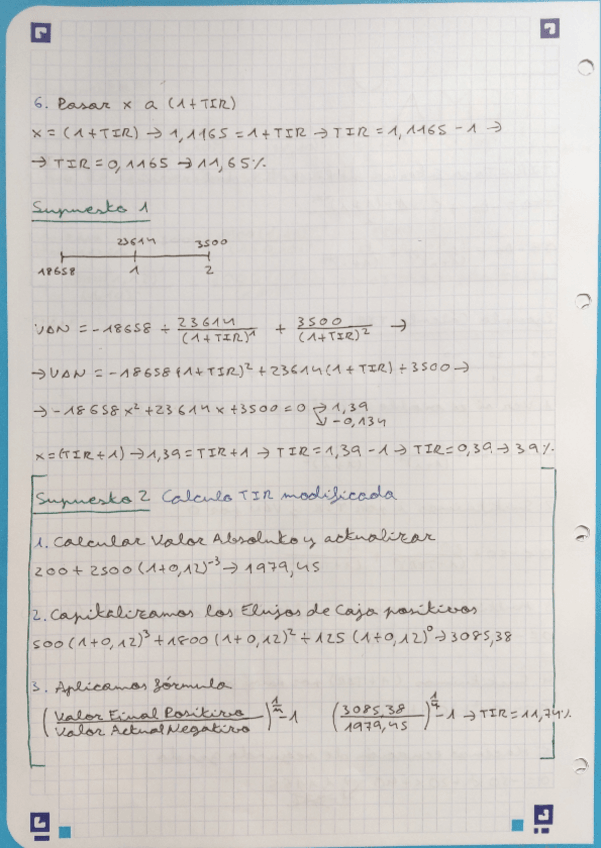 6. Pasar x a (1+TIR)
x = (1+TIR) → 1,1165 = 1+TIR → TIR = 1,1165 - 1 →
→ TIR = 0,1165 → 11,65%
Supuesto 1
23614 3500
18658 1 2
VAN = -18658 + 23614/(1+TIR)¹ + 3500/(1+TIR)² →
→ VAN = -18658 (1+TIR)² + 23614 (1+TIR) + 3500 →
→ -18658x² + 23614x + 3500 = 0 → 1,39
↳ -0,134
x = (TIR+1) → 1,39 = TIR+1 → TIR = 1,39 - 1 → TIR = 0,39 → 39%
Supuesto 2 Calculo TIR modificada
1. Calcular Valor Absoluto y actualizar
200 + 2500 (1+0,12)⁻³ → 1979,45
2. Capitalizamos los Flujos de Caja positivos
500 (1+0,12)³ + 1800 (1+0,12)² + 125 (1+0,12)⁰ → 3085,38
3. Aplicamos fórmula
(Valor Final Positivo / Valor Actual Negativo)^(1/n) - 1 (3085,38 / 1979,45)^(1/4) - 1 → TIR = 11,74%